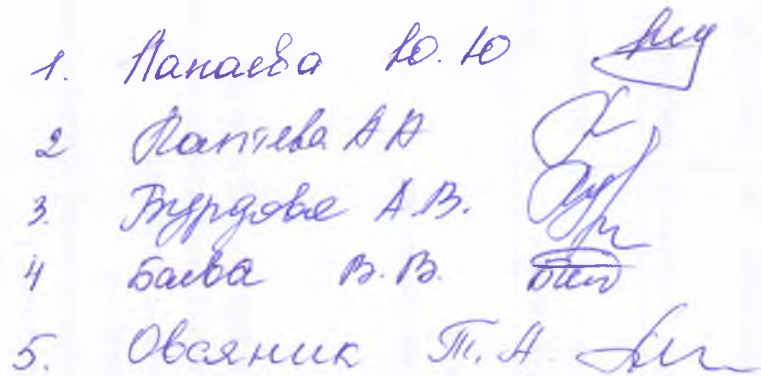 1. Панаева Ю. Ю
2 Лаптева А А
3. Бурдовая А. В.
4 Баева В. В.
5. Овсяник Т. А.